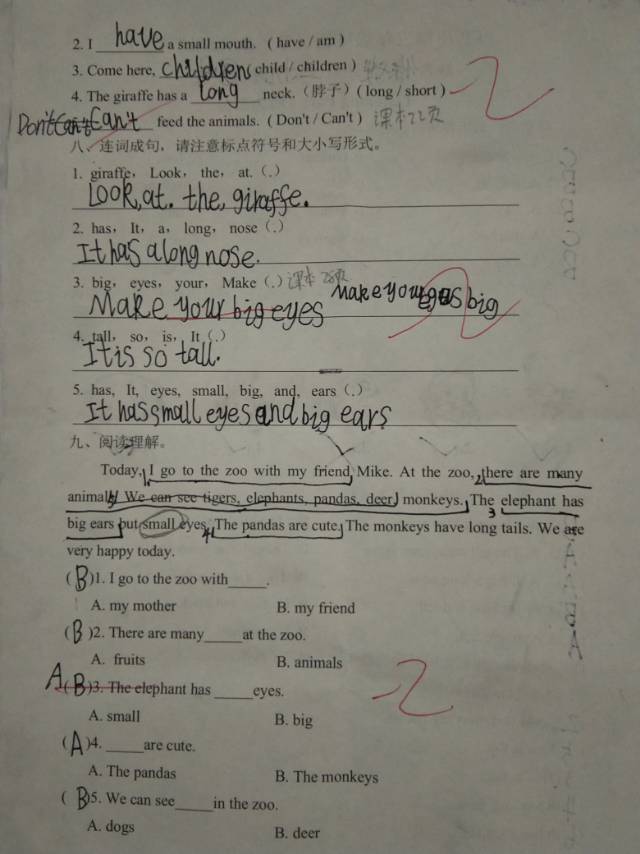 2. I have a small mouth. ( have / am )
3. Come here, childrens child / children )
4. The giraffe has a long neck.（脖子）( long / short )
Don't Can't Can't feed the animals. ( Don't / Can't ) 课本72页
八、连词成句，请注意标点符号和大小写形式。
1. giraffe， Look， the， at.（.）
Look, at. the, giraffe.
2. has， It， a， long， nose（.）
It has a long nose.
3. big， eyes， your， Make（.）课本
Make your big eyes Make your eyes big
4. tall， so， is， It（.）
It is so tall.
5. has, It, eyes, small, big, and, ears（.）
It has small eyes and big ears
九、阅读理解。
Today, I go to the zoo with my friend, Mike. At the zoo, 2 there are many
animals. We can see tigers, elephants, pandas, deer, monkeys. The 3 elephant has
big ears but small eyes. 4 The pandas are cute. The monkeys have long tails. We are
very happy today.
( B )1. I go to the zoo with_____.
A. my mother B. my friend
( B )2. There are many_____at the zoo.
A. fruits B. animals
A ( B )3. The elephant has _____eyes.
A. small B. big
( A )4. _____are cute.
A. The pandas B. The monkeys
( B )5. We can see_____in the zoo.
A. dogs B. deer